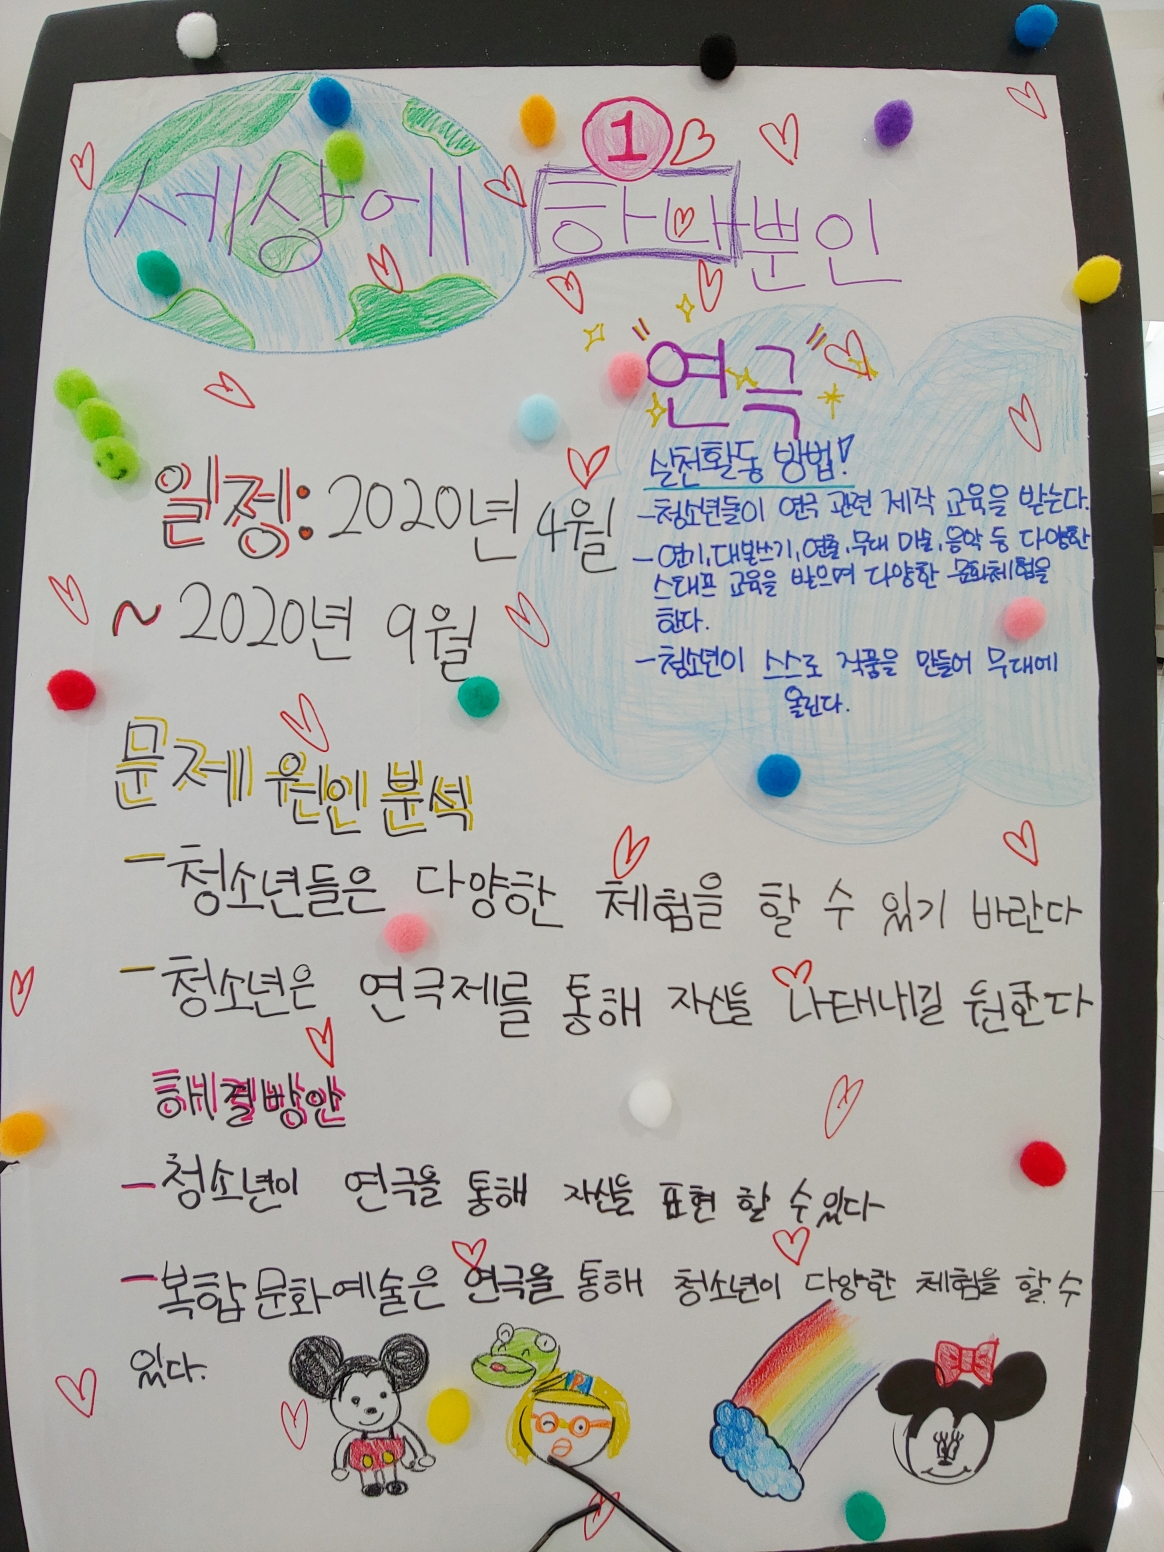 1
세상에 하나뿐인
연극
실천활동 방법!
-청소년들이 연극 관련 제작 교육을 받는다.
-연기,대본쓰기,연출,무대 미술,음악 등 다양한
스태프 교육을 받으며 다양한 문화체험을
한다.
-청소년이 스스로 작품을 만들어 무대에
올린다.
일정: 2020년 4월
~ 2020년 9월
문제 원인 분석
-청소년들은 다양한 체험을 할 수 있기 바란다
-청소년은 연극제를 통해 자신들 나태내길 원한다
해결방안
-청소년이 연극을 통해 자신들 표현 할 수있다
-복합문화예술은 연극을 통해 청소년이 다양한 체험을 할 수
있다.